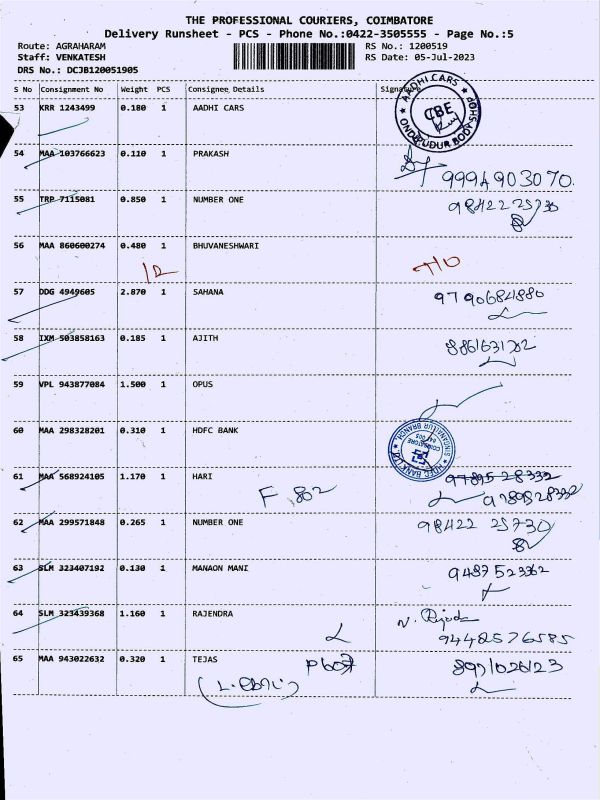 THE PROFESSIONAL COURIERS, COIMBATORE
Delivery Runsheet - PCS - Phone No.:0422-3505555 - Page No.:5
Route: AGRAHARAM RS No.: 1200519
Staff: VENKATESH RS Date: 05-Jul-2023
DRS No.: DCJB120051905
S No Consignment No Weight PCS Consignee Details Signature
53 KRR 1243499 0.180 1 AADHI CARS
AADHI CARS CBE ONDIPUDUR BODY SHOP
54 MAA 103766623 0.110 1 PRAKASH
9994903070.
55 TRP 7115081 0.850 1 NUMBER ONE 98422 25730
56 MAA 860600274 0.480 1 BHUVANESHWARI
57 DDG 4949605 2.870 1 SAHANA 9790684880
58 IXM 503858163 0.185 1 AJITH
59 VPL 943877084 1.500 1 OPUS
60 MAA 298328201 0.310 1 HDFC BANK
HDFC BANK LTD. SINGANALLUR BRANCH COIMBATORE 641 005
61 MAA 568924105 1.170 1 HARI 9789528332
F 802 9789528332
62 MAA 299571848 0.265 1 NUMBER ONE 98422 25730
63 SLM 323407192 0.130 1 MANAON MANI 9487523362
64 SLM 323439368 1.160 1 RAJENDRA
9442576585
65 MAA 943022632 0.320 1 TEJAS